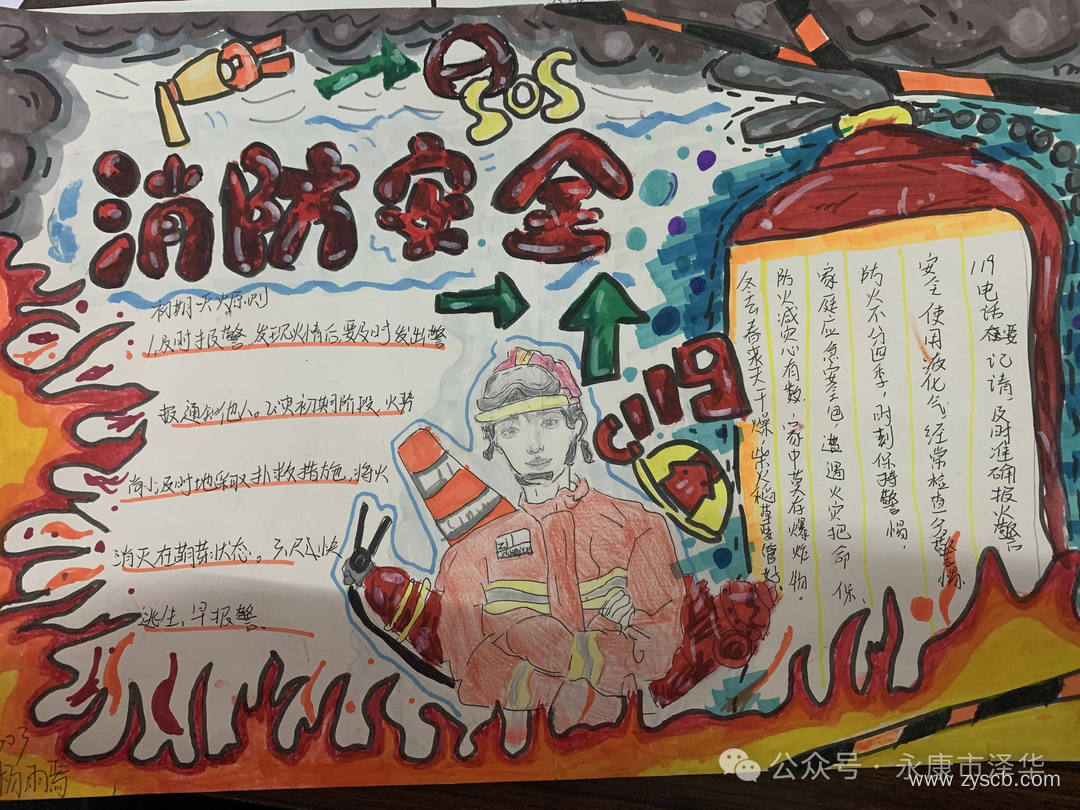 SOS
消防安全
初期灭火原则
1.及时报警,发现火情后要及时发出警
报通知他人。2.决初期阶段,火势
尚小及时地采取扑救措施,将火
消灭在萌芽状态。3.尽快
逃生,早报警。
119
119电话要记清 及时准确报火警
安全使用液化气 经常检查
防火不分四季,时刻保持警惕,
家庭应急 遭遇火灾把命保,
防火减灾心有数,家中莫存爆炸物。
冬去春来天干燥 柴火稻草要管好,
503
杨雨
公众号·永康市泽华
www.zyscb.com